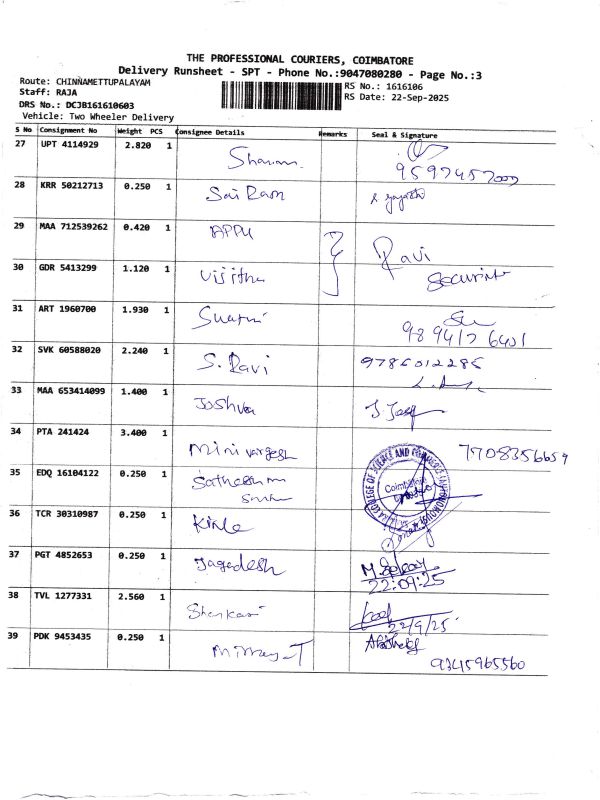 THE PROFESSIONAL COURIERS, COIMBATORE
Delivery Runsheet - SPT - Phone No.:9047080280 - Page No.:3
Route: CHINNAMETTUPALAYAM
RS No.: 1616106
Staff: RAJA
RS Date: 22-Sep-2025
DRS No.: DCJB161610603
Vehicle: Two Wheeler Delivery
S No Consignment No Weight PCS Consignee Details Remarks Seal & Signature
27 UPT 4114929 2.820 1
28 KRR 50212713 0.250 1 Sai Ram
29 MAA 712539262 0.420 1 APPU Ravi
30 GDR 5413299 1.120 1 Vijitha
31 ART 1960700 1.930 1 Swathi
32 SVK 60588020 2.240 1 S. Ravi 9786012286
33 MAA 653414099 1.400 1 Joshva
34 PTA 241424 3.400 1 Mini vargesh 7708356659
35 EDQ 16104122 0.250 1 Coimbatore
36 TCR 30310987 0.250 1
37 PGT 4852653 0.250 1 Jagadesh
22.09.25
38 TVL 1277331 2.560 1 22/9/25
39 PDK 9453435 0.250 1
9345965560